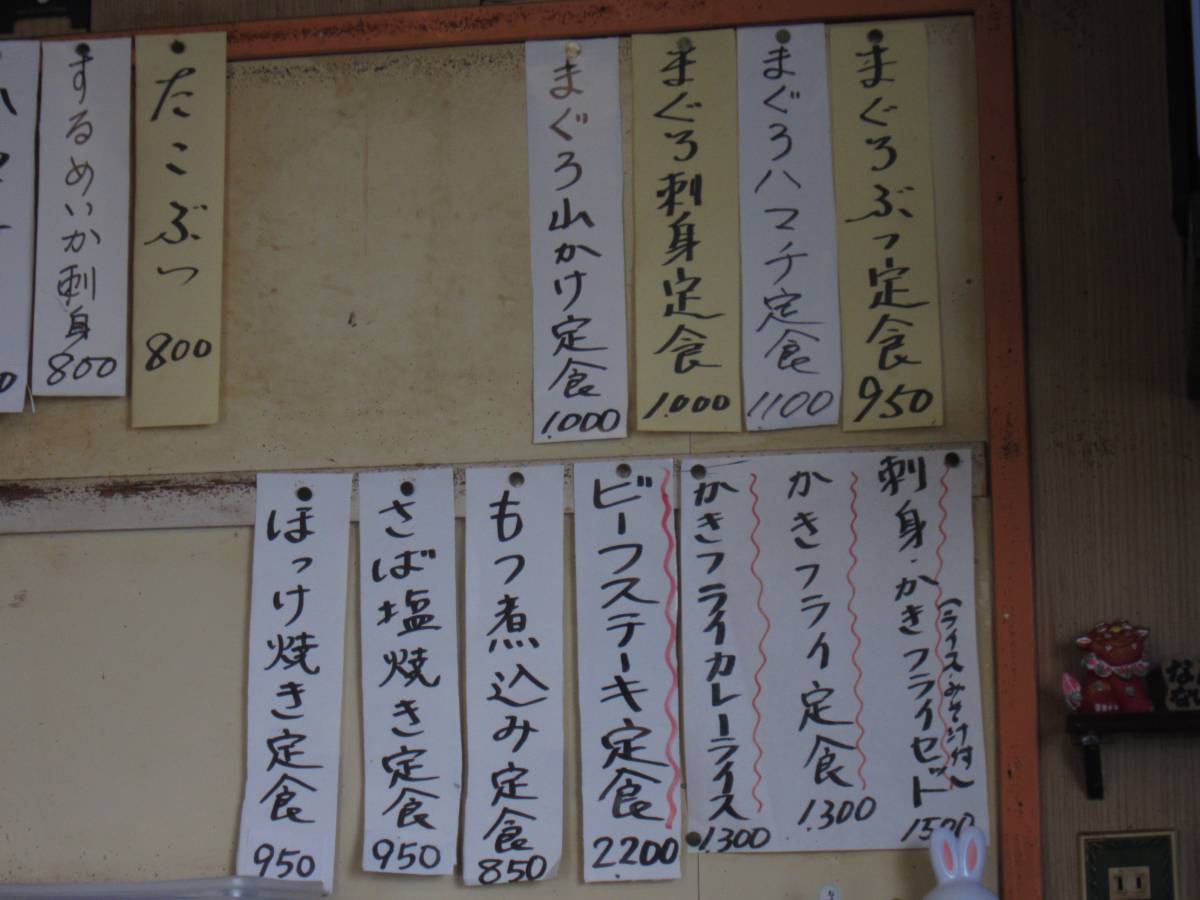 まぐろぶつ定食
950
まぐろハマチ定食
1100
まぐろ刺身定食
1.000
まぐろ山かけ定食
1.000
たこぶつ
800
するめいか刺身
800
刺身・かきフライセット
(ライス・みそ汁付)
1500
かきフライ定食
1.300
かきフライカレーライス
1300
ビーフステーキ定食
2200
もつ煮込み定食
850
さば塩焼き定食
950
ほっけ焼き定食
950
11